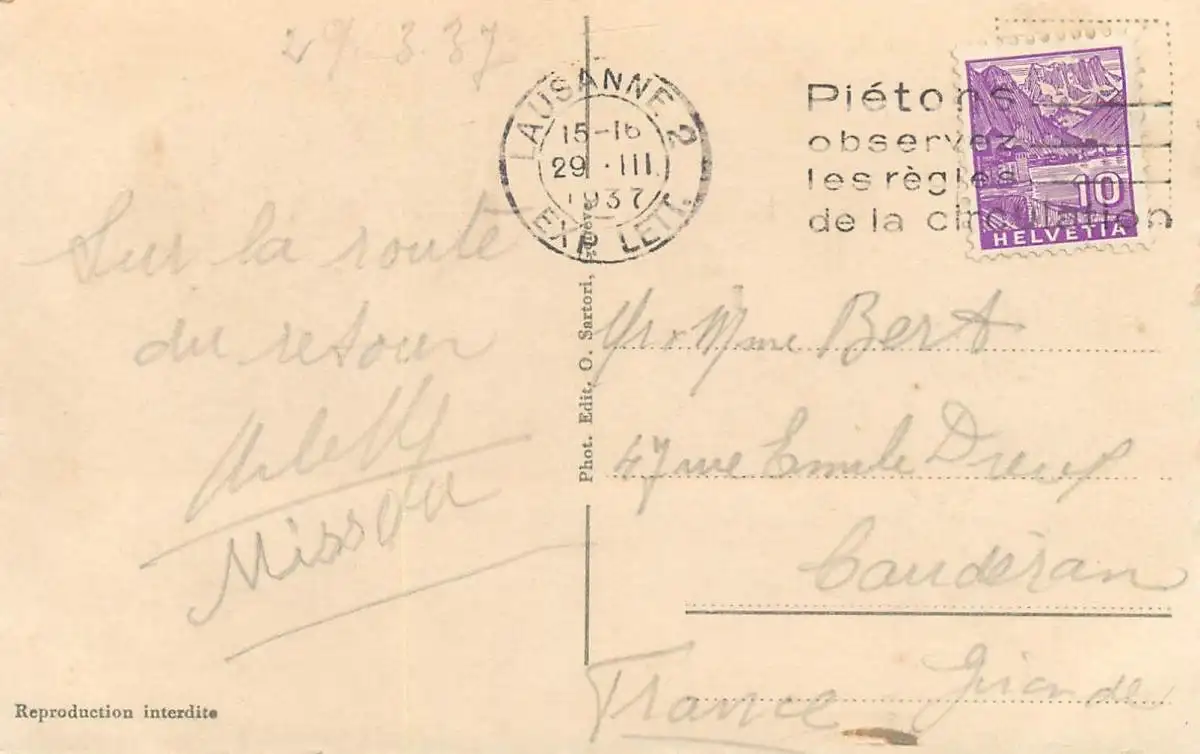 29.3.37
LAUSANNE 2
15-16
29.III.
1937
EXP. LETT.
Piétons
observez
les règles
de la circulation
10
HELVETIA
Sur la route
du retour
Arlette
Phot. Edit. O. Sartori, Genève
Mr & Mme Bert
47 rue Emile
Caudéran
Gironde
France
Reproduction interdite